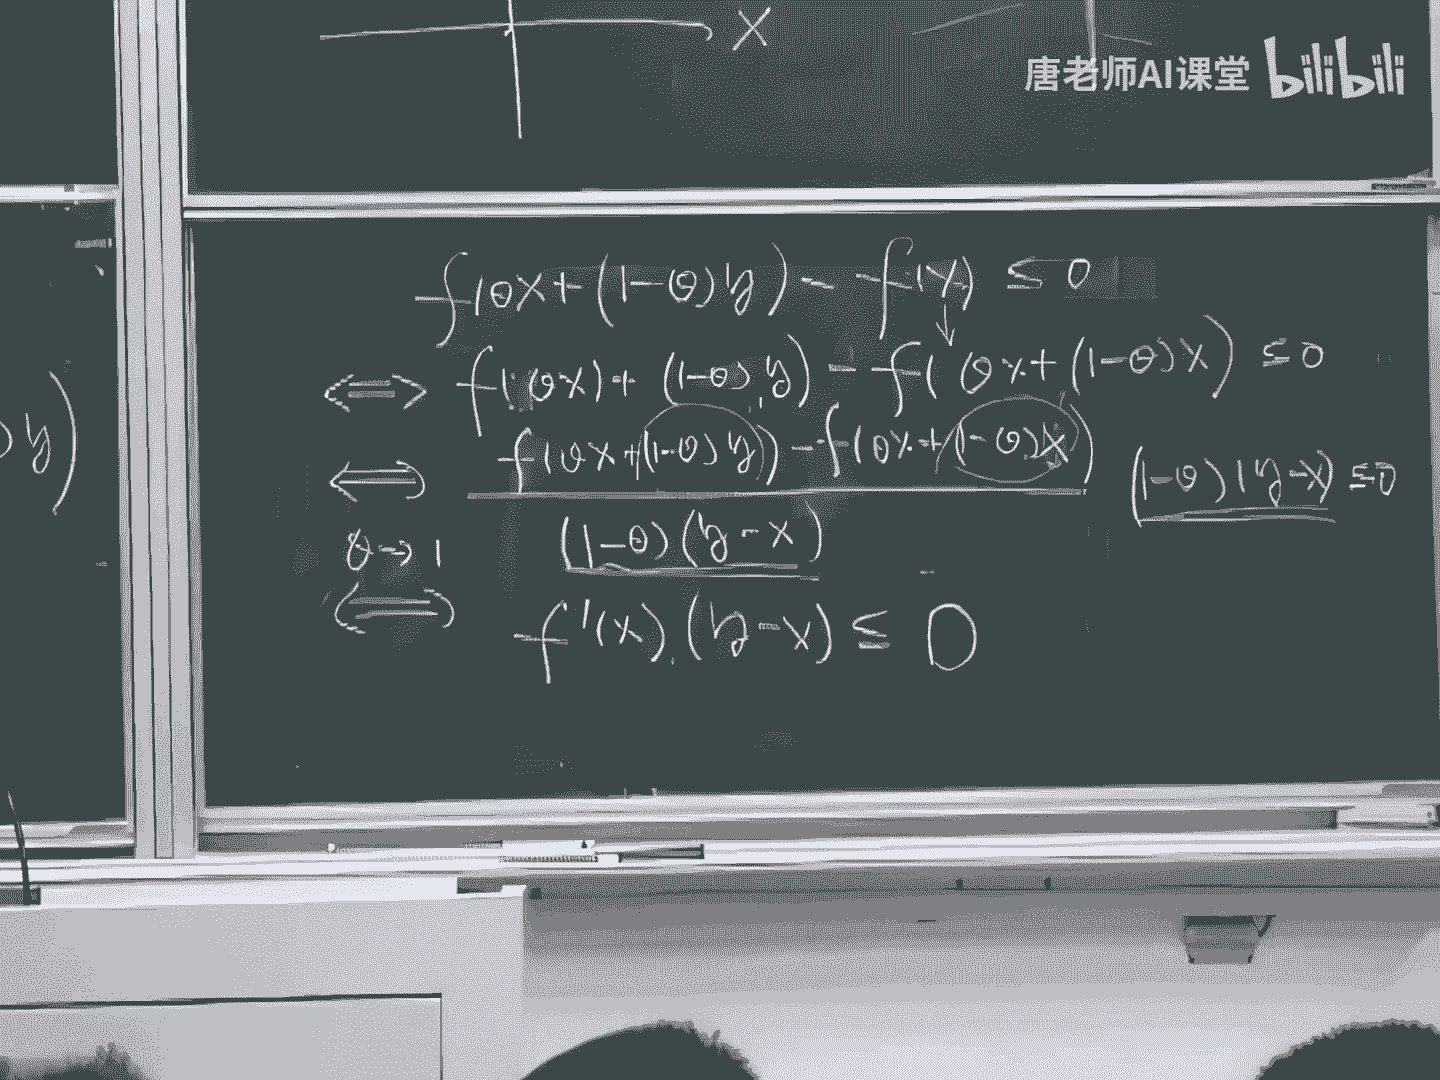 x
唐老师AI课堂 bilibili
f(θx+(1-θ)y) - f(x) ≤ 0
⇔ f((θx)+(1-θ)y) - f(θx+(1-θ)x) ≤ 0
⇔ f(θx+(1-θ)y) - f(θx+(1-θ)x) (1-θ)(y-x) ≤ 0
(1-θ)(y-x)
θ→1
⇔ f'(x).(y-x) ≤ 0
y)